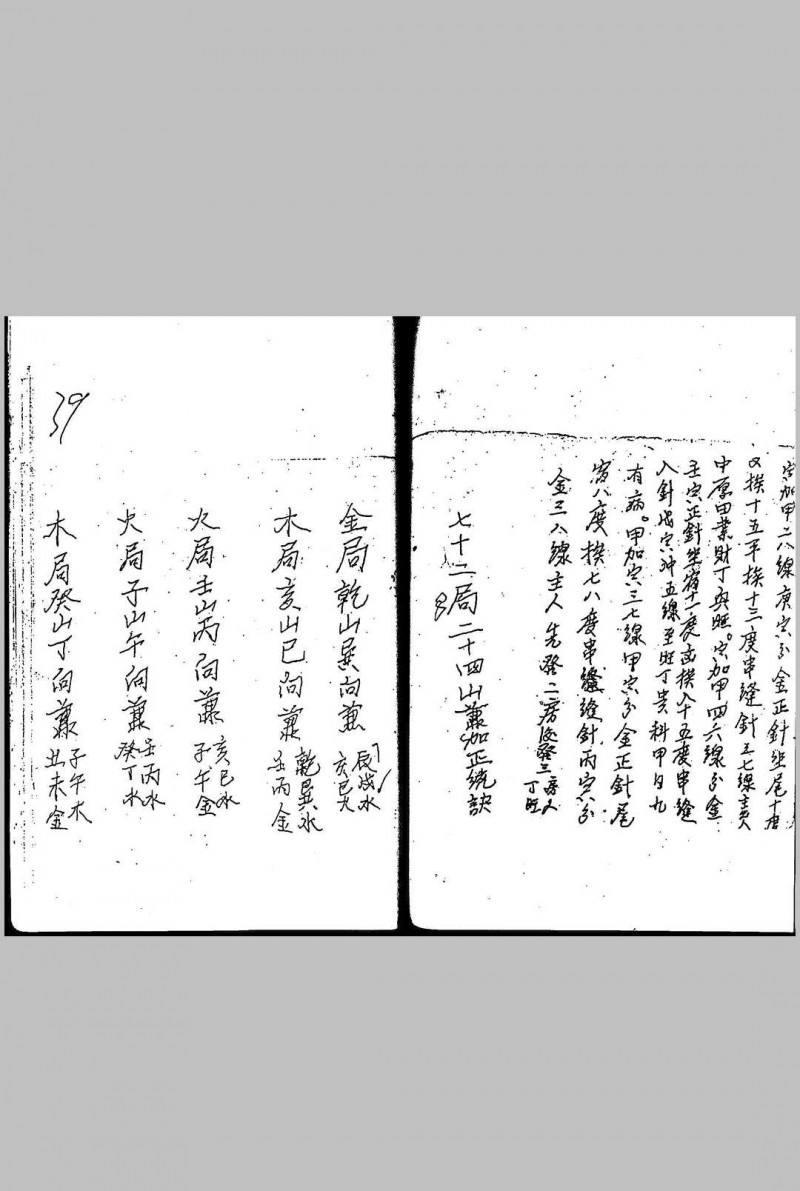 寅加甲二八線庚寅分金正針坐尾十度
又揆十五平揆十三度串縫針三七線主人
中原田業財丁興旺。寅加甲四六線分金
壬寅正針坐宿十一度揆入十五度串縫
入針戊寅冲五線至旺丁貴科甲日九
有病。甲加寅三七線甲寅分金正針尾
宿八度揆七八度串縫縫針丙寅分
金三八線主人先發二房後發三房人
丁旺
七十二局二十四山兼加正統訣
39
金局乾山巽向兼
辰戌水
亥巳火
木局亥山巳向兼
乾巽水
壬丙金
火局壬山丙向兼
亥巳水
子午金
火局子山午向兼
壬丙水
癸丁水
木局癸山丁向兼
子午木
丑未金